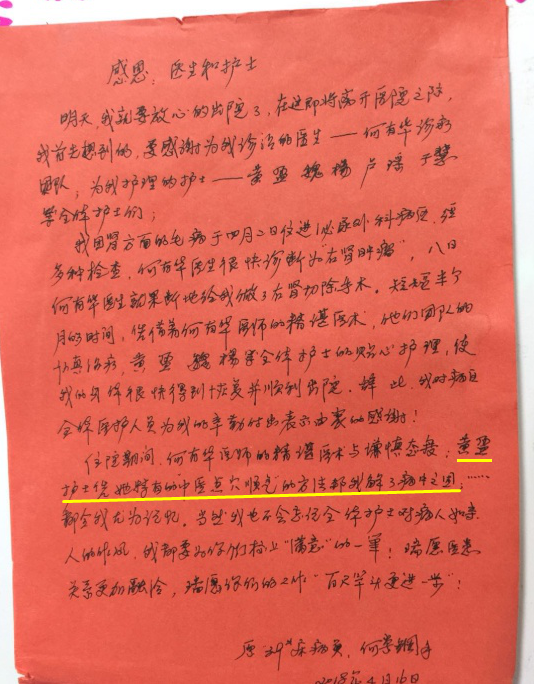 感恩：医生和护士
明天，我就要放心的出院了，在这即将离开医院之际，
我首先想到的，要感谢为我诊治的医生——何有华诊疗
团队，为我护理的护士——黄盈 魏杨 卢瑶 于慧
等全体护士们；
我因肾方面的毛病于四月二日住进泌尿外科病区，经
多种检查，何有华医生很快诊断为"右肾肿瘤"，八日
何有华医生就果断地给我做了右肾切除手术。短短半个
月的时间，凭借着何有华医师的精湛医术，他们团队的
认真治病，黄盈 魏杨等全体护士的贴心护理，使
我的身体很快得到恢复并顺利出院。在此，我对病区
全体医护人员为我的辛勤付出表示由衷的感谢！
住院期间，何有华医师的精湛医术与谨慎态度；黄盈
护士凭她特有的中医点穴顺气的方法帮我解了病中之困；……
都令我尤为记忆。当然我也不会忘记全体护士对病人如亲
人的作风，我都要为你们投上"满意"的一票！瑞愿医患
关系更加融洽，瑞愿你们的工作"百尺竿头更进一步"！
原 床病员，何 手
2018年4月16日